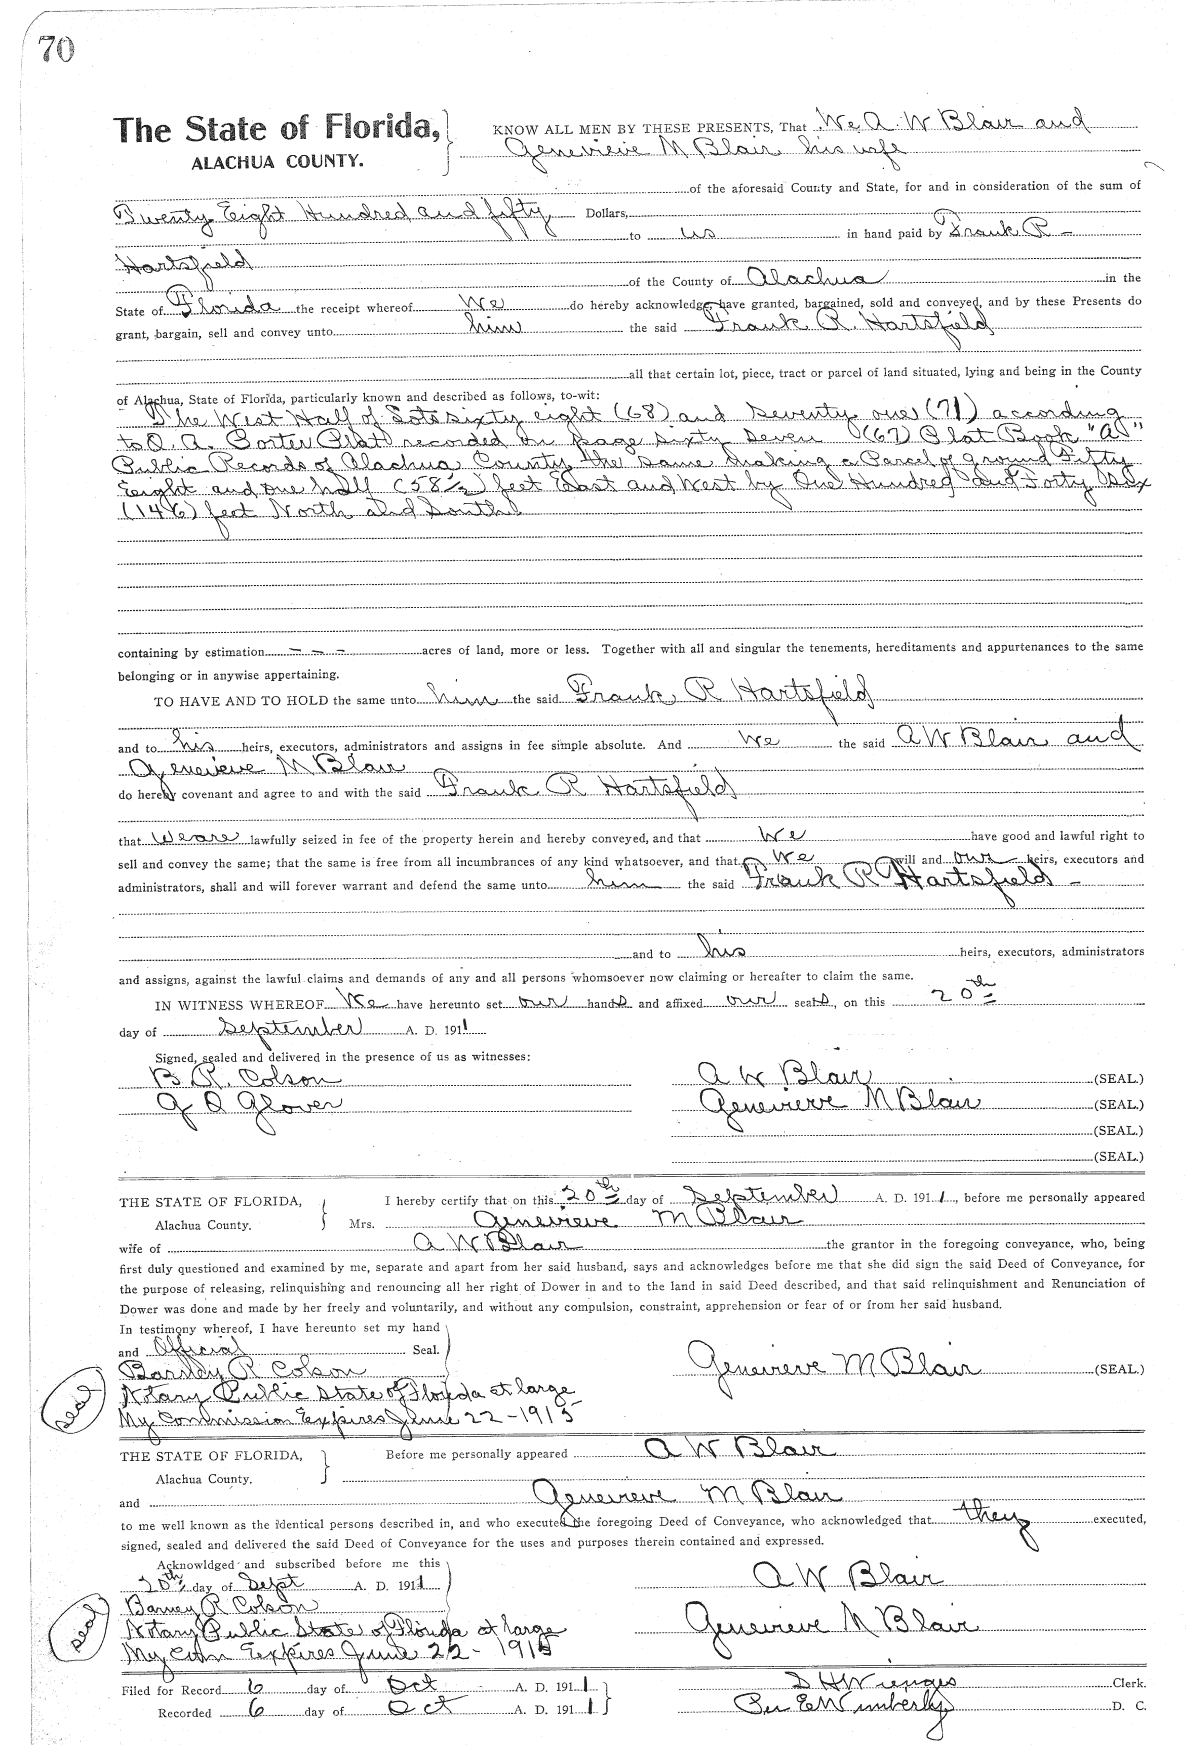 70
The State of Florida, KNOW ALL MEN BY THESE PRESENTS, That We A. W Blair and
ALACHUA COUNTY. Genevieve M Blair his wife
of the aforesaid County and State, for and in consideration of the sum of
Twenty Eight Hundred and fifty Dollars,
to us in hand paid by Frank R -
Hartsfield
of the County of Alachua in the
State of Florida the receipt whereof We do hereby acknowledge, have granted, bargained, sold and conveyed, and by these Presents do
grant, bargain, sell and convey unto him the said Frank R. Hartsfield
all that certain lot, piece, tract or parcel of land situated, lying and being in the County
of Alachua, State of Florida, particularly known and described as follows, to-wit:
The West Half of Lots sixty eight (68) and seventy one (71) according
to O. A. Porter Plat recorded in page sixty seven (67) Plat Book "A"
Public Records of Alachua County, the same making a Parcel of ground Fifty
Eight and one half (58½) feet East and West by One Hundred and Forty Six
(146) feet North and South
containing by estimation - - - acres of land, more or less. Together with all and singular the tenements, hereditaments and appurtenances to the same
belonging or in anywise appertaining.
TO HAVE AND TO HOLD the same unto him the said Frank R Hartsfield
and to his heirs, executors, administrators and assigns in fee simple absolute. And We the said A W Blair and
Genevieve M Blair
do hereby covenant and agree to and with the said Frank R Hartsfield
that We are lawfully seized in fee of the property herein and hereby conveyed, and that We have good and lawful right to
sell and convey the same; that the same is free from all incumbrances of any kind whatsoever, and that We will and our heirs, executors and
administrators, shall and will forever warrant and defend the same unto him the said Frank R Hartsfield -
and to his heirs, executors, administrators
and assigns, against the lawful claims and demands of any and all persons whomsoever now claiming or hereafter to claim the same.
IN WITNESS WHEREOF We have hereunto set our hands and affixed our seals, on this 20th
day of September A. D. 1911
Signed, sealed and delivered in the presence of us as witnesses:
B. R. Colson A W Blair (SEAL.)
Glover Genevieve M Blair (SEAL.)
(SEAL.)
(SEAL.)
THE STATE OF FLORIDA, I hereby certify that on this 20th day of September A. D. 1911, before me personally appeared
Alachua County. Mrs. Genevieve M Blair
wife of A W Blair the grantor in the foregoing conveyance, who, being
first duly questioned and examined by me, separate and apart from her said husband, says and acknowledges before me that she did sign the said Deed of Conveyance, for
the purpose of releasing, relinquishing and renouncing all her right of Dower in and to the land in said Deed described, and that said relinquishment and Renunciation of
Dower was done and made by her freely and voluntarily, and without any compulsion, constraint, apprehension or fear of or from her said husband.
In testimony whereof, I have hereunto set my hand
and Official Seal. Genevieve M Blair (SEAL)
Barney R Colson
seal Notary Public State of Florida at large
My Commission Expires June 22 - 1915
THE STATE OF FLORIDA, Before me personally appeared A W Blair
Alachua County.
and Genevieve M Blair
to me well known as the identical persons described in, and who executed the foregoing Deed of Conveyance, who acknowledged that they executed,
signed, sealed and delivered the said Deed of Conveyance for the uses and purposes therein contained and expressed.
Acknowldged and subscribed before me this
20th day of Sept A. D. 1911 A W Blair
Barney R Colson
seal Notary Public State of Florida at large Genevieve M Blair
My Com Expires June 22 - 1915
Filed for Record 6 day of Oct A. D. 1911 Wienges Clerk.
Recorded 6 day of Oct A. D. 1911 Wimberly D. C.